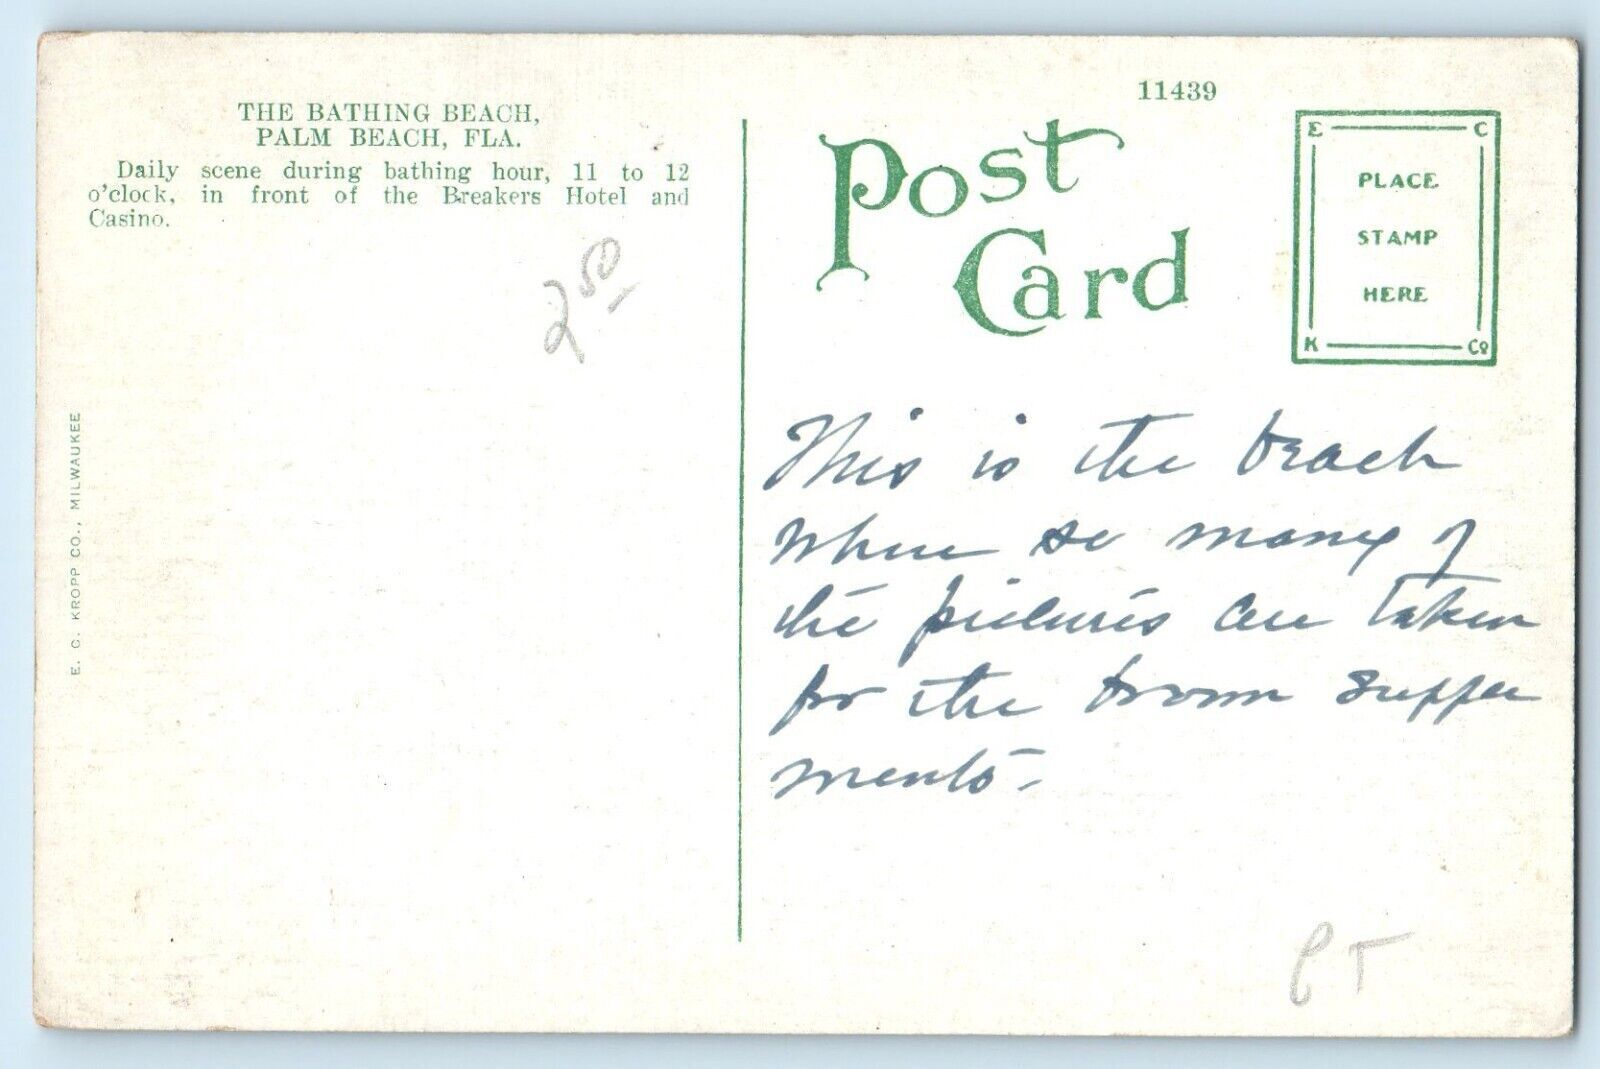 THE BATHING BEACH,
PALM BEACH, FLA.
Daily scene during bathing hour, 11 to 12
o'clock, in front of the Breakers Hotel and
Casino.
2 50
E. C. KROPP CO., MILWAUKEE
11439
Post
Card
E C
PLACE
STAMP
HERE
K Co
This is the beach
where so many of
the pictures are taken
for the brown supple
ments-
PT